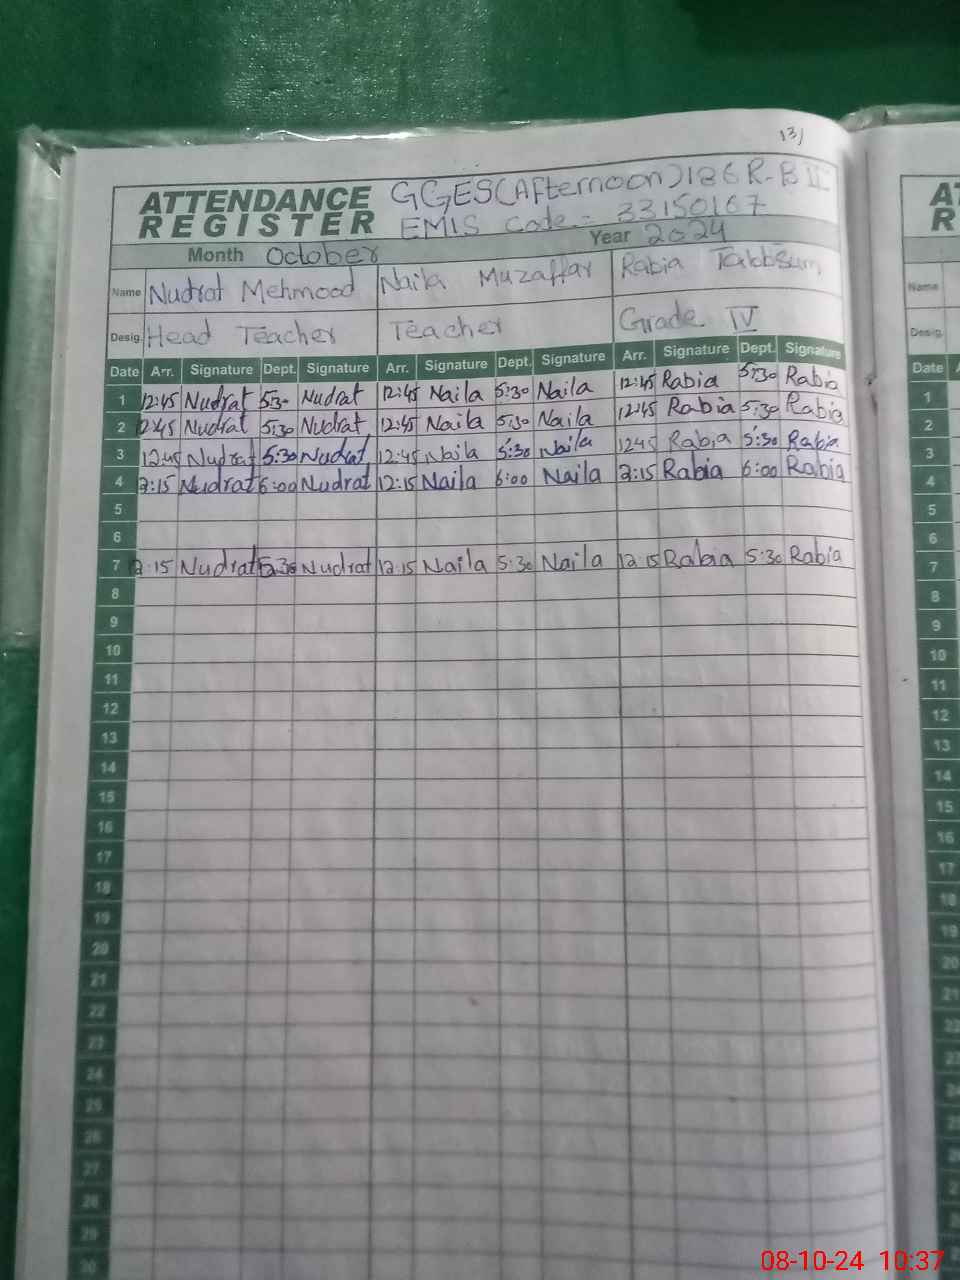 13/
ATTENDANCE REGISTER
GGES(Afternoon) 186 R-B II
EMIS Code = 33150167
Month October Year 2024
Name Nudrat Mehmood Naila Muzaffar Rabia Tabbsum
Desig. Head Teacher Teacher Grade IV
Date Arr. Signature Dept. Signature Arr. Signature Dept. Signature Arr. Signature Dept. Signature
1 12:45 Nudrat 5:30 Nudrat 12:45 Naila 5:30 Naila 12:45 Rabia 5:30 Rabia
2 12:45 Nudrat 5:30 Nudrat 12:45 Naila 5:30 Naila 12:45 Rabia 5:30 Rabia
3 12:45 Nudrat 5:30 Nudrat 12:45 Naila 5:30 Naila 12:45 Rabia 5:30 Rabia
4 2:15 Nudrat 6:00 Nudrat 12:15 Naila 6:00 Naila 2:15 Rabia 6:00 Rabia
5
6
7 12:15 Nudrat 5:30 Nudrat 12:15 Naila 5:30 Naila 12:15 Rabia 5:30 Rabia
8
9
10
11
12
13
14
15
16
17
18
19
20
21
22
23
24
25
26
27
28
29
30
Name
Desig.
Date
1
2
3
4
5
6
7
8
9
10
11
12
13
14
15
16
17
18
19
20
21
22
23
08-10-24 10:37